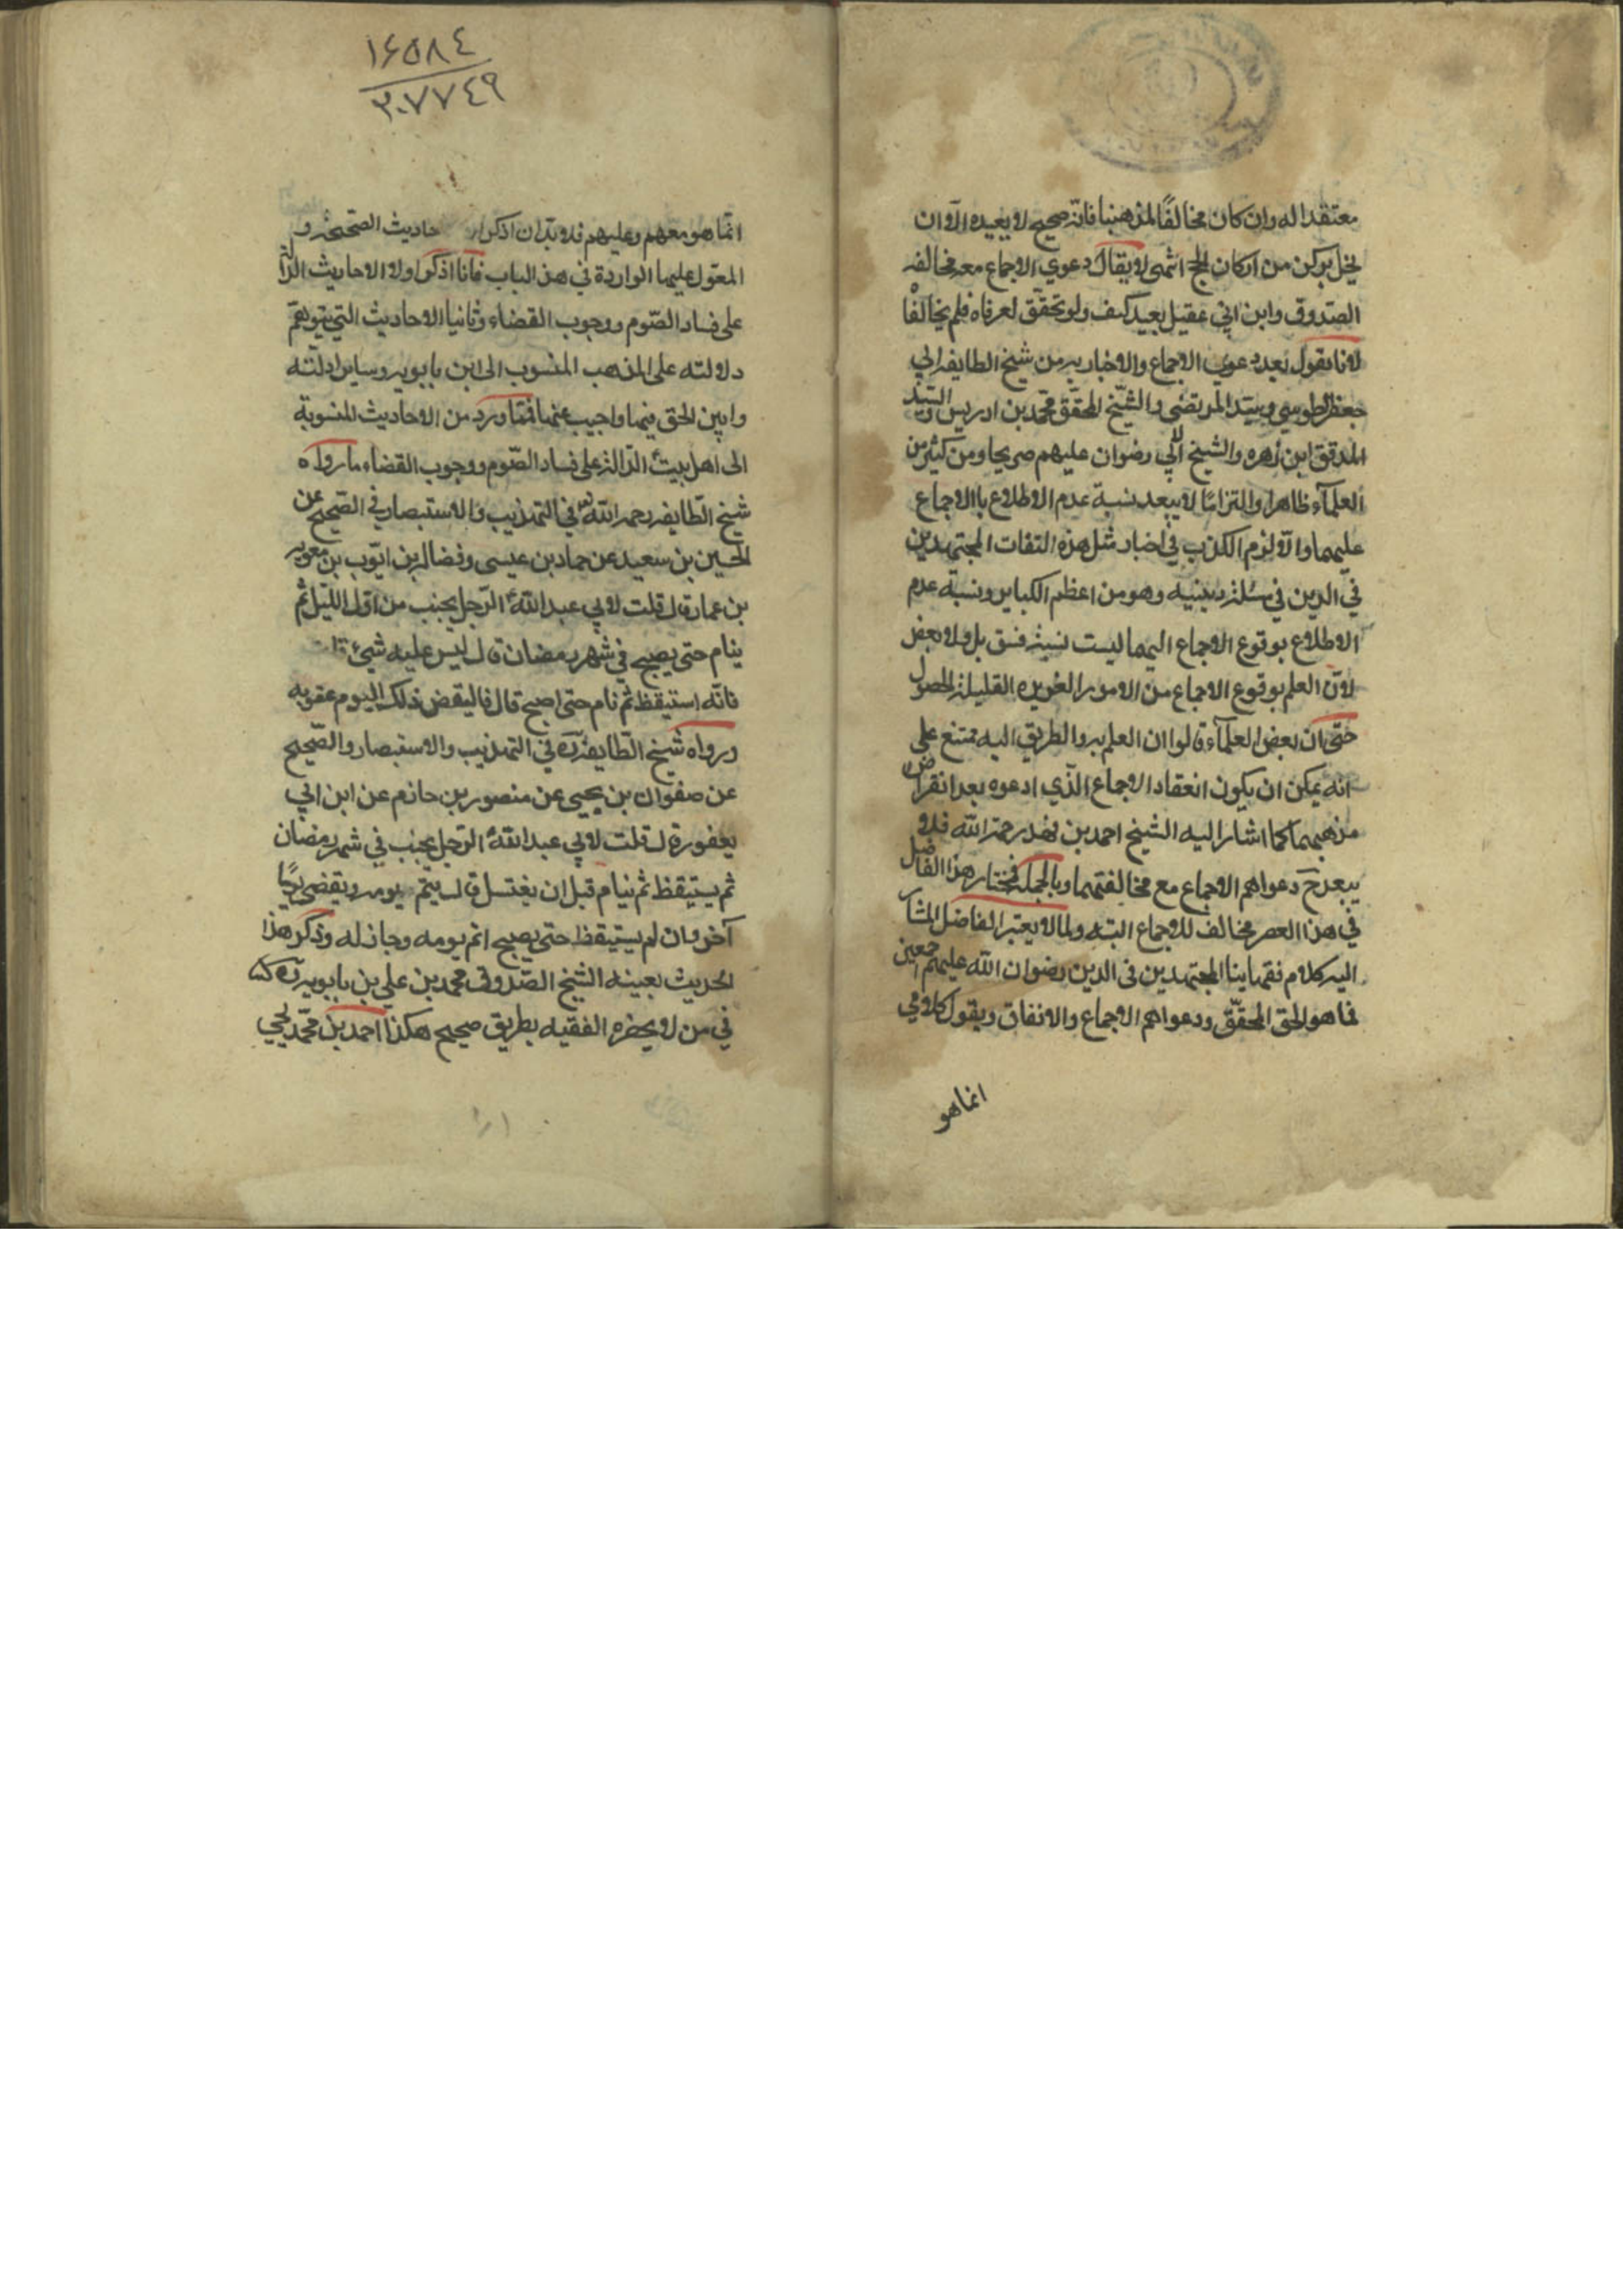 معتقدا له وان كان مخالفًا لمذهبنا فانه صحيح لا يعيده الا ان
يخل بركن من اركان الحج انتهى لا يقال دعوي الاجماع مع مخالفه
الصدوق وابن ابي عقيل بعيد كيف ولو تحقق لعرفاه فلم يخالفا
لانا نقول بعد دعوي الاجماع والاخبار به من شيخ الطايفه ابي
جعفر الطوسي وسيد المرتضى والشيخ المحقق محمد بن ادريس والسيد
المدقق ابن زهره والشيخ الآبي رضوان عليهم صريحا ومن كثير من
العلمآء ظاهرا والتزامًا لا يبعد نسبة عدم الاطلاع باالاجماع
عليهما والا لزم الكذب في اخبار مثل هذه الثقات المجتهدين
في الدين في مسئلة دينيه وهو من اعظم الكباير ونسبة عدم
الاطلاع بوقوع الاجماع اليهما ليست نسبة فسق بل ولا نقص
لان العلم بوقوع الاجماع من الامور الغريزه القليلة الحصول
حتى ان بعض العلمآء قالوا ان العلم به والطريق اليه ممتنع على
انه يمكن ان يكون انعقاد الاجماع الذي ادعوه بعد انقراض
مذهبهما كما اشار اليه الشيخ احمد بن فهد رحمه الله فلا
يبعد ح دعواهم الاجماع مع مخالفتهما وبالجملة فمختار هذا الفاضل
في هذا العصر مخالف للاجماع البته ولما لا يعتبر الفاضل المشار
اليه كلام فقهاينا المجتهدين فى الدين رضوان الله عليهم اجمعين
فما هو الحق المحقق ودعواهم الاجماع والاتفاق ويقول كلامي
انما هو
١۶٥٨٤
٢٠٧٧٤٩
انما هو معهم وعليهم فلا بد ان اذكر حاديث الصحيحة و
المعول عليها الواردة في هذا الباب فانا اذكر اولا الاحاديث الدالة
على فساد الصوم ووجوب القضاء وثانيا الاحاديث التي يتوهم
دلالته على المذهب المنسوب الى ابن بابويه وساير ادلته
وابين الحق فيها واجيب عنها فمما ورد من الاحاديث المنسوبة
الى اهل بيت الدالة على فساد الصوم ووجوب القضاء ما رواه
شيخ الطايفه رحمه الله في التهذيب والاستبصار في الصحيح عن
الحسين بن سعيد عن حماد بن عيسى وفضالة بن ايوب بن معويه
بن عمار قال قلت لابي عبد الله الرجل يجنب من اول الليل ثم
ينام حتى يصبح في شهر رمضان قال ليس عليه شيئ قلت
فانه استيقظ ثم نام حتى اصبح قال فاليقض ذلك اليوم عقوبه
ورواه شيخ الطايفه ره في التهذيب والاستبصار والصحيح
عن صفوان بن يحيى عن منصور بن حازم عن ابن ابي
يعفور قال قلت لابي عبد الله الرجل يجنب في شهر رمضان
ثم يستيقظ ثم ينام قبل ان يغتسل قال يتم يومه ويقضى يومًا
آخر وان لم يستيقظ حتى يصبح اتم يومه وجاز له وذكر هذا
الحديث بعينه الشيخ الصدوق محمد بن علي بن بابويه ره
في من لا يحضره الفقيه بطريق صحيح هكذا احمد بن محمد يحيي